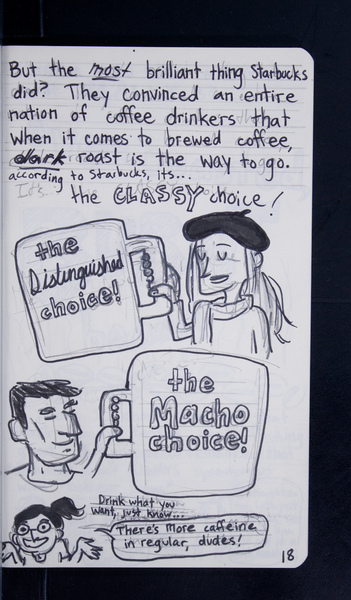 But the most brilliant thing Starbucks
did? They convinced an entire
nation of coffee drinkers that
when it comes to brewed coffee,
dark roast is the way to go.
according to Starbucks, its...
the CLASSY choice!
the
Distinguished
choice!
the
Macho
choice!
Drink what you
want, just know...
There's more caffeine
in regular, dudes!
18